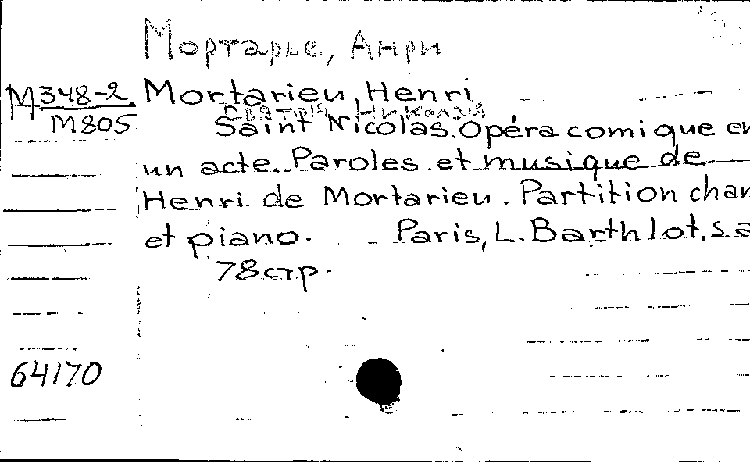 Мортарье, Анри
М 348-2 Mortarieu, Henri
М805 Saint Nicolas. Opéra comique en
un acte. Paroles et musique de
Henri de Mortarieu. Partition chan
et piano. - Paris, L. Barthlot, s.a
78 стр.
64170